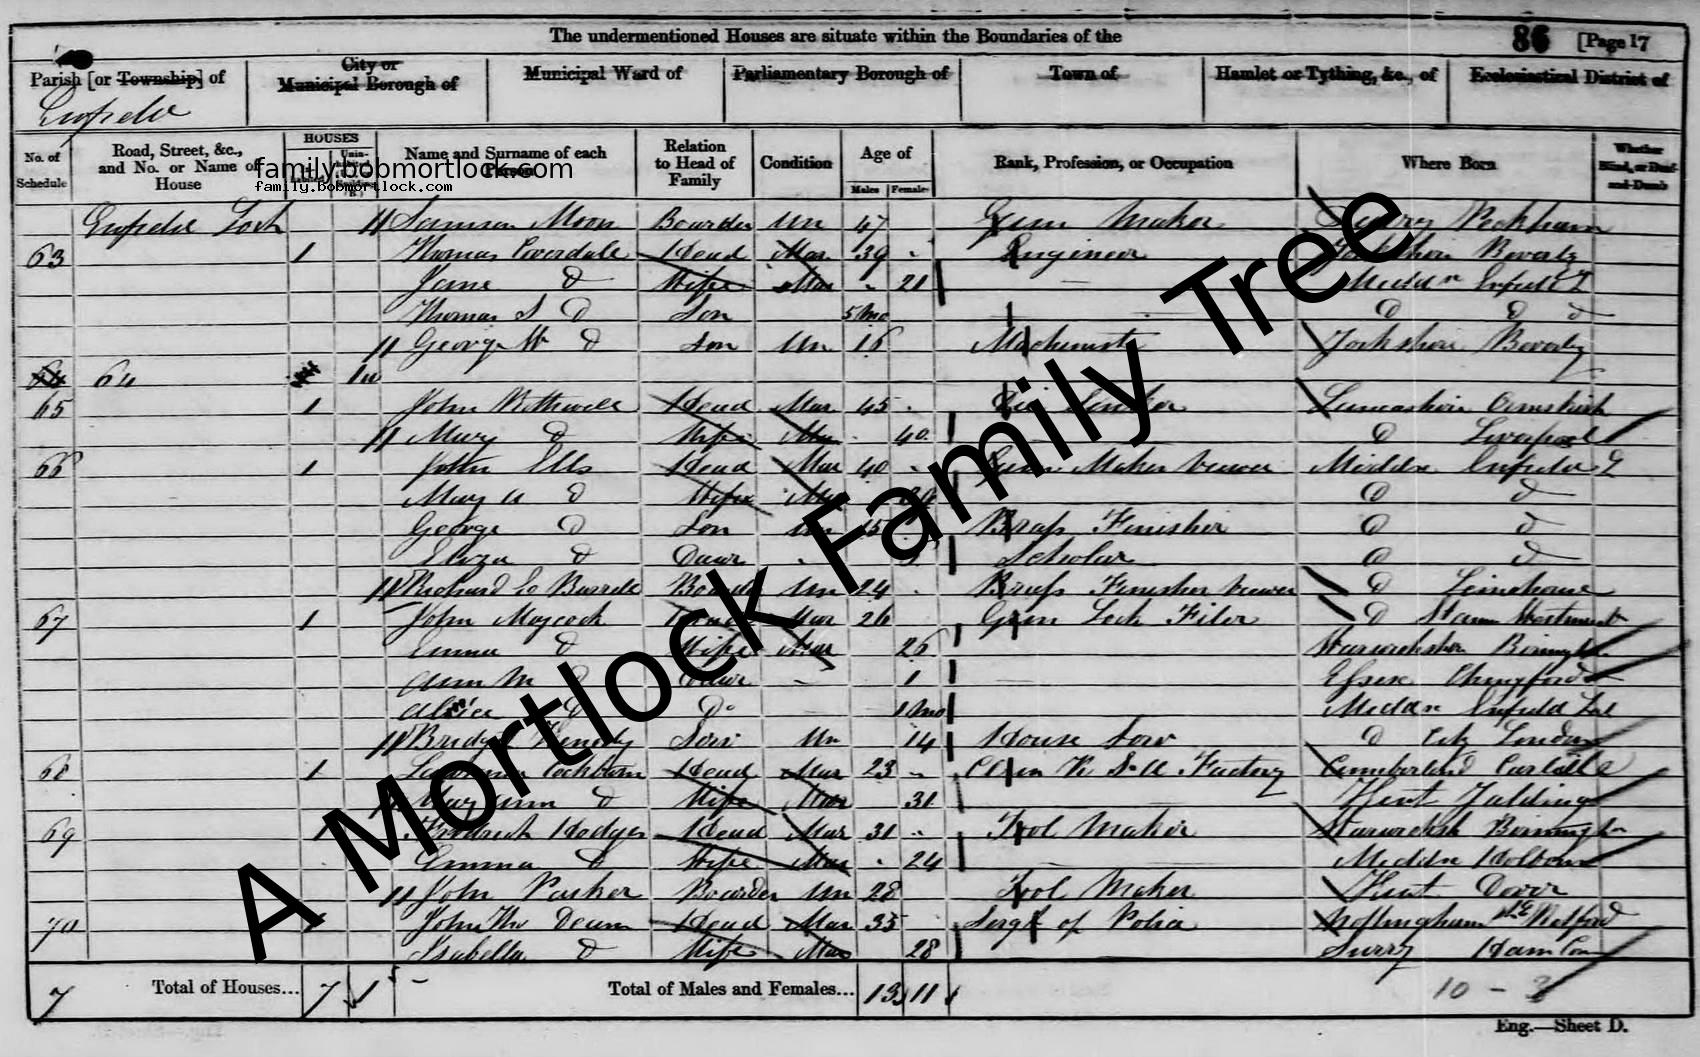 The undermentioned Houses are situate within the Boundaries of the 86 [Page 17
Parish [or Township] of City or Municipal Borough of Municipal Ward of Parliamentary Borough of Town of Hamlet or Tything, &c., of Ecclesiastical District of
Enfield
No. of Schedule Road, Street, &c., and No. or Name of House HOUSES Name and Surname of each Person Relation to Head of Family Condition Age of Males Females Rank, Profession, or Occupation Where Born Whether Blind, or Deaf-and-Dumb
family.bobmortlock.com
family.bobmortlock.com
Enfield Lock Moon Boarder Un 47 Gun Maker Surry Peckham
63 1 Thomas Coverdale Head Mar 39 Engineer Yorkshire Beverly
Jane D Wife Mar 21 Middx Enfield
Thomas S D Son 5 Mo D D D
George W D Son Un 16 Machinist Yorkshire Beverly
64 64 1u
65 1 John Head Mar 45 Lancashire Ormskirk
Mary D Wife Mar 40 D Liverpool
66 1 John Ells Head Mar 40 Gun Maker Viewer Middx Enfield
Mary A D Wife Mar D D
George D Son Un 15 Brass Finisher D D
Eliza D Daur Scholar D D
Richard Burrell Board Un 24 Brass Finisher Viewer D Limehouse
67 1 John Maycock Head Mar 26 Gun Lock Filer D
Emma D Wife Mar 26 Warwickshire
Ann M D Daur 1 Essex Chingford
Alice D Do 1 Mo Middx Enfield Loc
Kenedy Serv Un 14 House Serv D City London
68 1 Cockburn Head Mar 23 Clerk R S A Factory Cumberland Carlisle
Mary Ann D Wife Mar 31 Kent Yalding
69 1 Fredrick Hodges Head Mar 31 Tool Maker
Emma D Wife Mar 24 Middx Holborn
John Parker Boarder Un 28 Tool Maker Kent Dover
70 John Thos Head Mar 35 Sergt of Police Nottingham Retford
Isabella D Wife Mar 28 Surry Ham Com
7 Total of Houses... 7 1 Total of Males and Females... 13 11 10 - 3
Eng.—Sheet D.
A Mortlock Family Tree